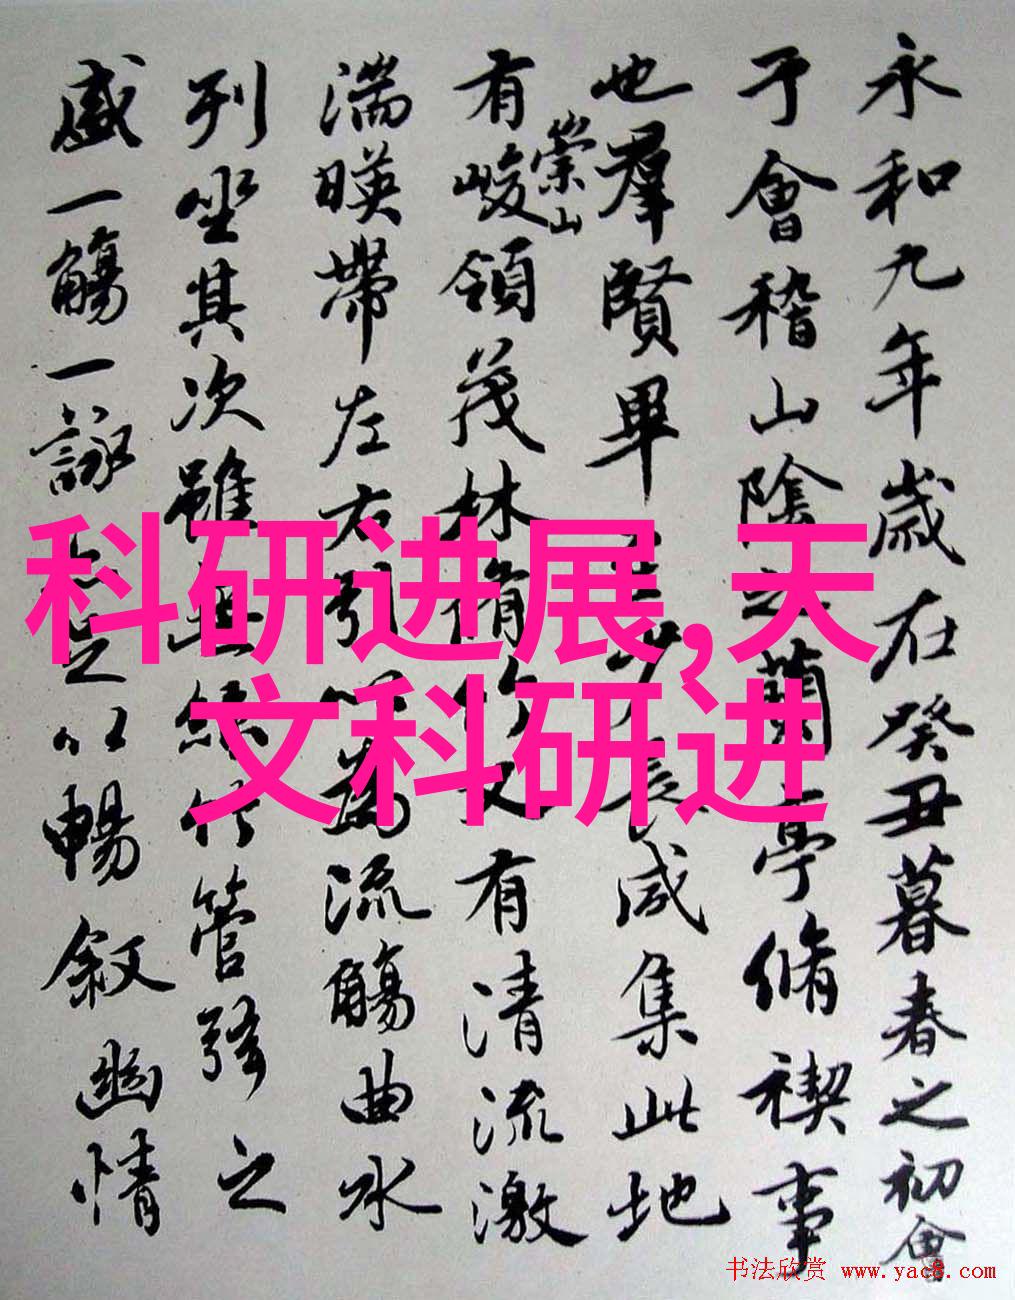 永和九年歲在癸丑暮春之初會
于會稽山陰之蘭亭脩禊事
也羣賢畢至少長咸集此地
有崇山峻領茂林脩竹又有清流激
湍暎帶左右引以為流觴曲水
列坐其次雖無絲竹管弦之
盛一觴一詠亦足以暢叙幽情
科研进展,天
文科研进
书法欣赏 www.yac8.com